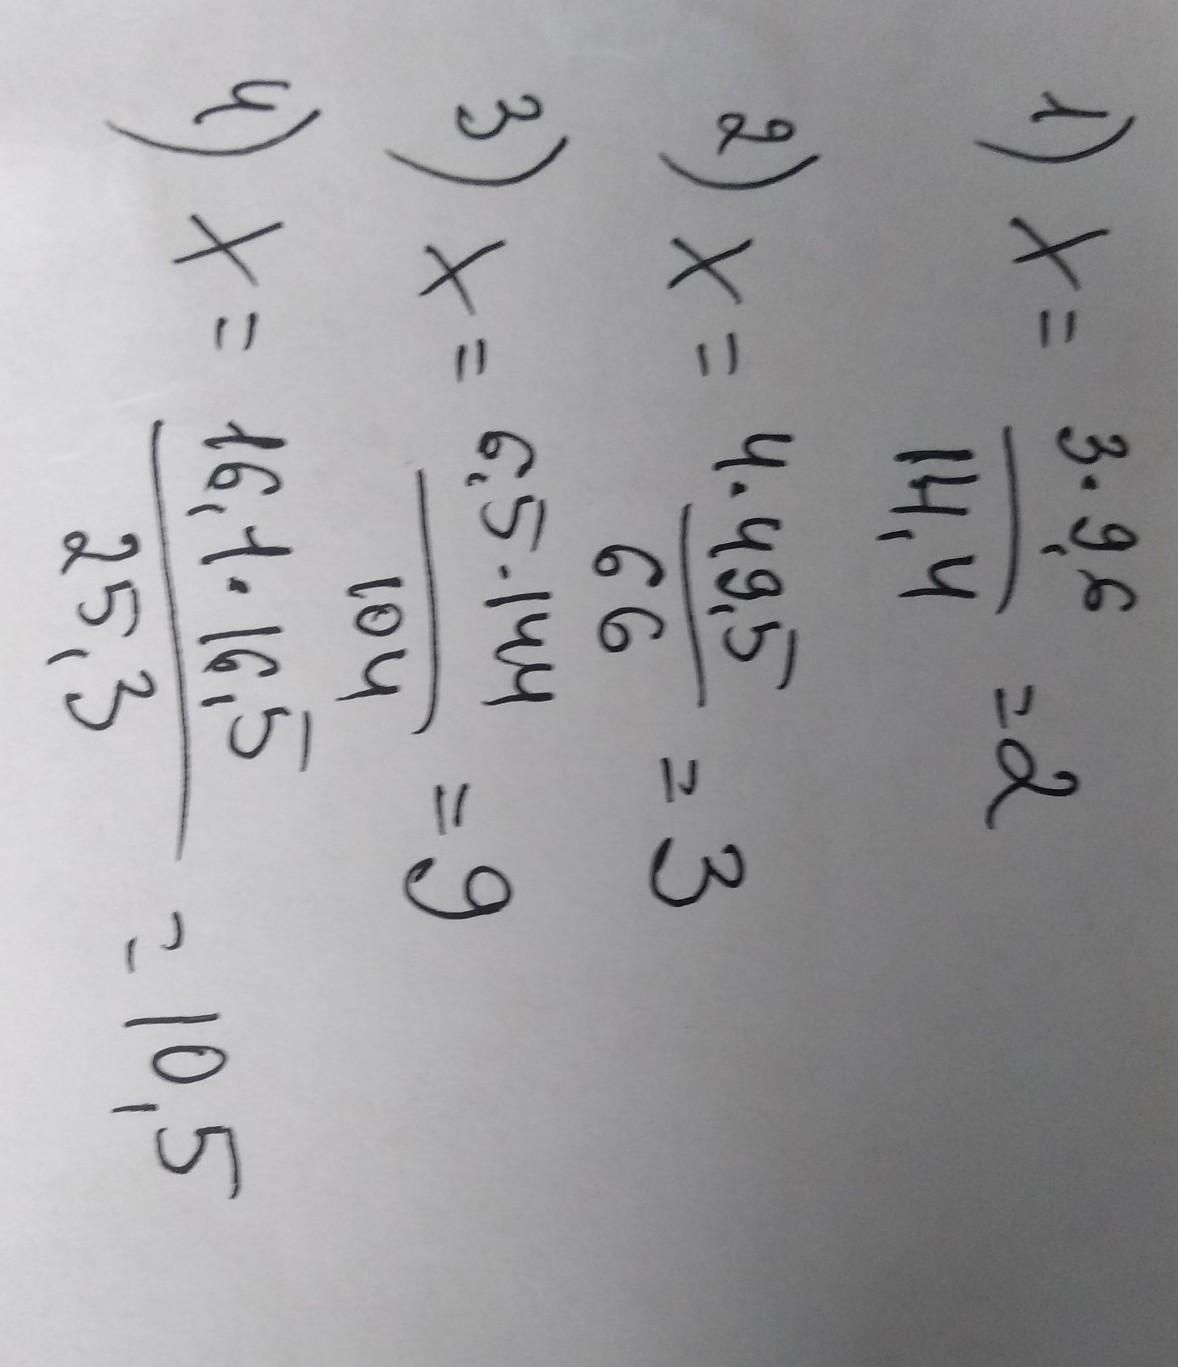 1) x = 3·9,6 / 14,4 = 2
2) x = 4·49,5 / 66 = 3
3) x = 6,5·144 / 104 = 9
4) x = 16,1·16,5 / 25,3 = 10,5